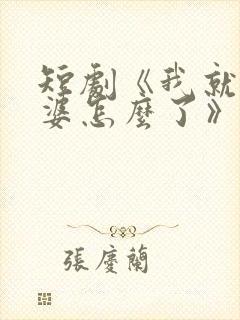 短劇《我就
婆怎麼了》
張慶蘭